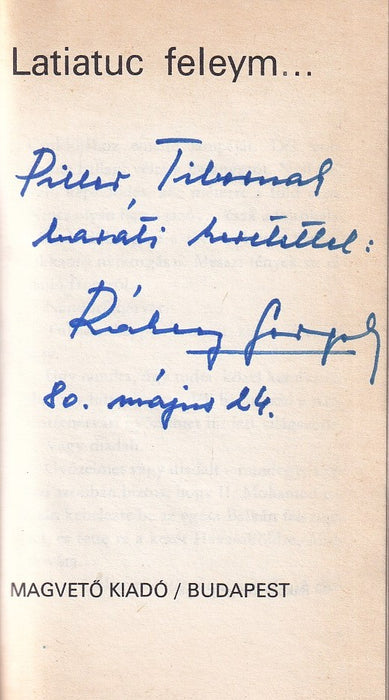 Latiatuc feleym...
Piller Tibornak
baráti szeretettel:
Ráskay György
80. május 24.
MAGVETŐ KIADÓ / BUDAPEST